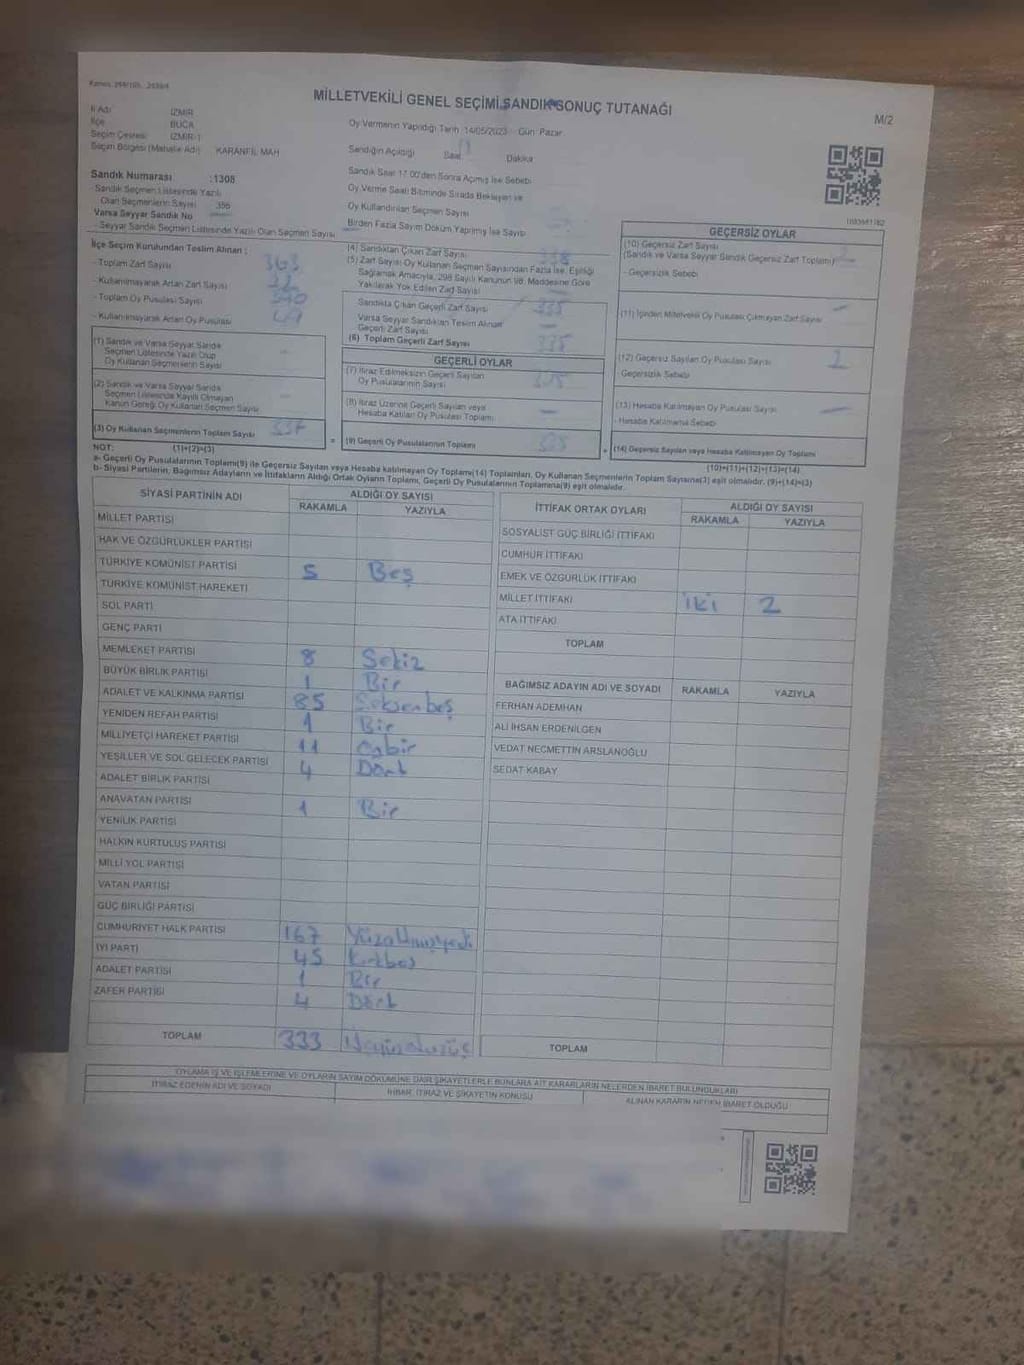 Kanun: 298/105, 2839/4
MİLLETVEKİLİ GENEL SEÇİMİ SANDIK SONUÇ TUTANAĞI
M/2
İl Adı İZMİR
İlçe BUCA
Seçim Çevresi İZMİR-1
Seçim Bölgesi (Mahalle Adı) KARANFİL MAH
Oy Vermenin Yapıldığı Tarih 14/05/2023 Gün: Pazar
Sandığın Açıldığı Saat Dakika
Sandık Numarası :1308
Sandık Seçmen Listesinde Yazılı
Olan Seçmenlerin Sayısı 356
Varsa Seyyar Sandık No
Seyyar Sandık Seçmen Listesinde Yazılı Olan Seçmen Sayısı
Sandık Saat 17.00'den Sonra Açılmış İse Sebebi
Oy Verme Saati Bitiminde Sırada Bekleyen ve
Oy Kullandırılan Seçmen Sayısı
Birden Fazla Sayım Döküm Yapılmış İse Sayısı
İlçe Seçim Kurulundan Teslim Alınan :
- Toplam Zarf Sayısı 363
- Kullanılmayarak Artan Zarf Sayısı
- Toplam Oy Pusulası Sayısı
- Kullanılmayarak Artan Oy Pusulası
(1) Sandık ve Varsa Seyyar Sandık
Seçmen Listesinde Yazılı Olup
Oy Kullanan Seçmenlerin Sayısı
(2) Sandık ve Varsa Seyyar Sandık
Seçmen Listesinde Kayıtlı Olmayan
Kanun Gereği Oy Kullanan Seçmen Sayısı
(3) Oy Kullanan Seçmenlerin Toplam Sayısı 337
(4) Sandıktan Çıkan Zarf Sayısı 338
(5) Zarf Sayısı Oy Kullanan Seçmen Sayısından Fazla İse, Eşitliği
Sağlamak Amacıyla, 298 Sayılı Kanunun Maddesine Göre
Yakılarak Yok Edilen Zarf Sayısı
Sandıkta Çıkan Geçerli Zarf Sayısı 335
Varsa Seyyar Sandıktan Teslim Alınan
Geçerli Zarf Sayısı
(6) Toplam Geçerli Zarf Sayısı 335
GEÇERLİ OYLAR
(7) İtiraz Edilmeksizin Geçerli Sayılan
Oy Pusulalarının Sayısı
(8) İtiraz Üzerine Geçerli Sayılan veya
Hesaba Katılan Oy Pusulası Toplamı
(9) Geçerli Oy Pusulalarının Toplamı
GEÇERSİZ OYLAR
(10) Geçersiz Zarf Sayısı
(Sandık ve Varsa Seyyar Sandık Geçersiz Zarf Toplamı)
- Geçersizlik Sebebi
(11) İçinden Milletvekili Oy Pusulası Çıkmayan Zarf Sayısı
(12) Geçersiz Sayılan Oy Pusulası Sayısı 2
Geçersizlik Sebebi
(13) Hesaba Katılmayan Oy Pusulası Sayısı
- Hesaba Katılmama Sebebi
(14) Geçersiz Sayılan veya Hesaba Katılmayan Oy Toplamı
(10)+(11)+(12)+(13)=(14)
NOT: (1)+(2)=(3)
a- Geçerli Oy Pusulalarının Toplamı(9) ile Geçersiz Sayılan veya Hesaba katılmayan Oy Toplamı(14) Toplamları, Oy Kullanan Seçmenlerin Toplam Sayısına(3) eşit olmalıdır. (9)+(14)=(3)
b- Siyasi Partilerin, Bağımsız Adayların ve İttifakların Aldığı Ortak Oyların Toplamı, Geçerli Oy Pusulalarının Toplamına(9) eşit olmalıdır.
SİYASİ PARTİNİN ADI ALDIĞI OY SAYISI
RAKAMLA YAZIYLA
MİLLET PARTİSİ
HAK VE ÖZGÜRLÜKLER PARTİSİ
TÜRKİYE KOMÜNİST PARTİSİ 5 Beş
TÜRKİYE KOMÜNİST HAREKETİ
SOL PARTİ
GENÇ PARTİ
MEMLEKET PARTİSİ 8 Sekiz
BÜYÜK BİRLİK PARTİSİ 1 Bir
ADALET VE KALKINMA PARTİSİ 85 Seksenbeş
YENİDEN REFAH PARTİSİ 1 Bir
MİLLİYETÇİ HAREKET PARTİSİ 11 Onbir
YEŞİLLER VE SOL GELECEK PARTİSİ 4 Dört
ADALET BİRLİK PARTİSİ
ANAVATAN PARTİSİ 1 Bir
YENİLİK PARTİSİ
HALKIN KURTULUŞ PARTİSİ
MİLLİ YOL PARTİSİ
VATAN PARTİSİ
GÜÇ BİRLİĞİ PARTİSİ
CUMHURİYET HALK PARTİSİ 167 Yüzaltmışyedi
İYİ PARTİ 45 Kırkbeş
ADALET PARTİSİ 1 Bir
ZAFER PARTİSİ 4 Dört
TOPLAM 333 Üçyüzotuzüç
İTTİFAK ORTAK OYLARI ALDIĞI OY SAYISI
RAKAMLA YAZIYLA
SOSYALİST GÜÇ BİRLİĞİ İTTİFAKI
CUMHUR İTTİFAKI
EMEK VE ÖZGÜRLÜK İTTİFAKI
MİLLET İTTİFAKI iki 2
ATA İTTİFAKI
TOPLAM
BAĞIMSIZ ADAYIN ADI VE SOYADI RAKAMLA YAZIYLA
FERHAN ADEMHAN
ALİ İHSAN ERDENİLGEN
VEDAT NECMETTİN ARSLANOĞLU
SEDAT KABAY
TOPLAM
OYLAMA İŞ VE İŞLEMLERİNE VE OYLARIN SAYIM DÖKÜMÜNE DAİR ŞİKAYETLERLE BUNLARA AİT KARARLARIN NELERDEN İBARET BULUNDUKLARI
İTİRAZ EDENİN ADI VE SOYADI İHBAR, İTİRAZ VE ŞİKAYETİN KONUSU ALINAN KARARIN NEDEN İBARET OLDUĞU